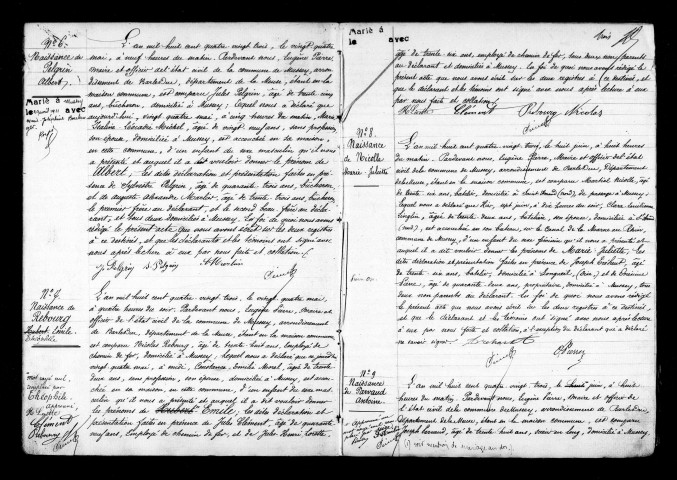 N° 6.
Naissance de
Pelgrin
Albert
Marié à Mussey
le avec
L'an mil huit cent quatre vingt trois, le vingt quatre
mai, à neuf heures du matin. Pardevant nous, Eugène Pierre,
Maire et officier de l'état civil de la commune de Mussey, arron-
dissement de Bar-le-Duc, département de la Meuse, étant en la
maison commune, est comparu Jules Pelgrin, âgé de trente cinq
ans, bûcheron, domicilié à Mussey; lequel nous a déclaré que
aujourd'hui, vingt quatre mai, à cinq heures du matin, Marie
Michel, âgée de vingt neuf ans, sans profession,
son épouse, domiciliée à Mussey, est accouchée en sa maison,
en cette commune, d'un enfant du sexe masculin qu'il nous
a présenté et auquel il a dit vouloir donner le prénom de
Albert, les dites déclaration et présentation faites en pré-
sence de Sylvestre Pelgrin, âgé de quarante trois ans, bûcheron,
et de Auguste Alexandre Martin, âgé de trente trois ans, bûcheron,
le premier frère au déclarant, et le second beau frère au décla-
rant, et tous deux domiciliés à Mussey. En foi de quoi nous avons
rédigé le présent acte que nous avons inscrit sur les deux registres
à ce destinés, et que les déclarants et les témoins ont signé avec
nous après lecture à eux par nous faite et collation.
J. Pelgrin S. Pelgrin A Martin
Pierre
N° 7.
Naissance de
Rebourg
Emile
Théophile
L'an mil huit cent quatre vingt trois, le vingt quatre mai,
à quatre heures du soir. Pardevant nous, Eugène Pierre, Maire et
officier de l'état civil de la commune de Mussey, arrondissement
de Bar-le-Duc, département de la Meuse, étant en la maison commune,
est comparu Nicolas Rebourg, âgé de trente huit ans, Employé de
chemin de fer, domicilié à Mussey, lequel nous a déclaré que aujourd'hui
vingt quatre mai, à midi, Constance Emilie Morel, âgée de trente
deux ans, sans profession, son épouse, domiciliée à Mussey, est accou-
chée en sa maison, en cette commune, d'un enfant du sexe mas-
culin qu'il nous a présenté et auquel il a dit vouloir donner
les prénoms de Emile; les dites déclaration et
présentation faites en présence de Jules Clément, âgé de quarante
neuf ans, Employé de chemin de fer, et de Jules Henri
Théophile
Clément
Rebourg
Marié à
le avec
trois
âgé de trente six ans, employé de chemin de fer, tous deux non parents
au déclarant et domiciliés à Mussey. En foi de quoi nous avons rédigé le
présent acte que nous avons inscrit sur les deux registres à ce destinés, et
que le déclarant et les témoins ont signé avec nous après lecture à
eux par nous faite et collation.
Clément Rebourg Nicolas
Pierre
N° 8.
Naissance
de Nicolle
Marie Juliette
L'an mil huit cent quatre vingt trois, le huit juin, à huit
heures du matin. Pardevant nous, Eugène Pierre, Maire et officier de l'état
civil de la commune de Mussey, arrondissement de Bar-le-Duc, Département
de la Meuse, étant en la maison commune, est comparu Nicolle, âgé
de trente six ans, batelier, domicilié à (nord), de passage à Mussey,
lequel nous a déclaré que Hier, sept juin, à dix heures du soir, Clara
âgée de trente deux ans, batelière, son épouse, domiciliée à
(nord), est accouchée en son bateau, sur le Canal de la Marne au Rhin,
commune de Mussey, d'un enfant du sexe féminin qu'il nous a présenté et au-
quel il a dit vouloir donner les prénoms de Marie Juliette; les
dites déclaration et présentation faites en présence de Joseph âgé
de trente six ans, batelier, domicilié à Longueil (Oise) et de
Pierre, âgé de quarante deux ans, propriétaire, domicilié à Mussey, tous
deux non parents au déclarant. En foi de quoi nous avons rédigé
le présent acte que nous avons inscrit sur les deux registres à ce destinés
et que le déclarant et les témoins ont signé avec nous après lecture
à eux par nous faite et collation, à l'exception du déclarant qui a déclaré
ne savoir signer.
Pierre
N° 9
Naissance
de Parraud
Antoine.
L'an mil huit cent quatre vingt trois, le juin, à huit
heures du matin. Pardevant nous, Eugène Pierre, Maire et officier de
l'état civil de la commune de Mussey, arrondissement de Bar-le-Duc,
Département de la Meuse, étant en la maison commune, est comparu
Joseph Parraud, âgé de trente huit ans, scieur en long, domicilié à Mussey,
(voir mention de mariage au dos)